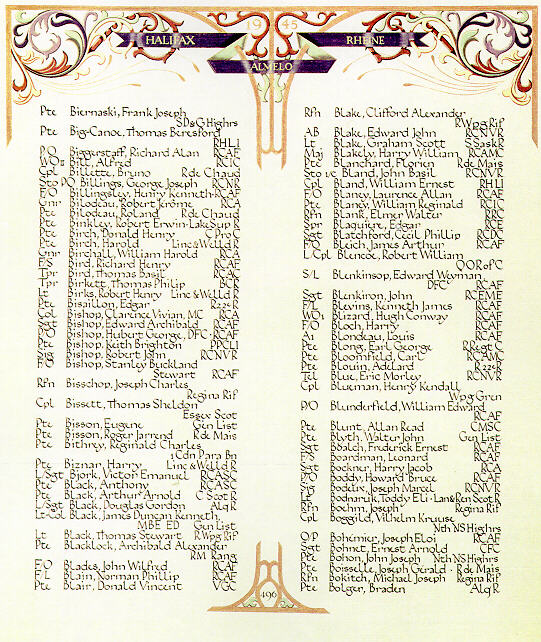 19 45
HALIFAX RHEINE
ALMELO
Pte Biernaski, Frank Joseph
SD&G Highrs
Pte Big-Canoe, Thomas Beresford
RHLI
P/O Biggerstaff, Richard Alan RCAF
WO II Bill, Alfred RCIC
Cpl Billette, Bruno R de Chaud
Sto PO Billings, George Joseph RCNR
F/O Billingsley, Henry Kenneth RCAF
Gnr Bilodeau, Robert Jerome RCA
Pte Bilodeau, Roland R de Chaud
Pte Binkley, Robert Erwin - Lake Sup R
Pte Birch, Donald Henry C Pro C
Pte Birch, Harold Linc & Welld R
Gnr Birchall, William Harold RCA
F/S Bird, Richard Henry RCAF
Tpr Bird, Thomas Basil RCAC
Tpr Birkett, Thomas Philip BCR
Lt Birks, Robert Henry Linc & Welld R
Pte Bisaillon, Edgar R 22e R
Col Bishop, Clarence Vivian, MC RCA
Sgt Bishop, Edward Archibald RCAF
P/O Bishop, Hulbert George, DFC · RCAF
Pte Bishop, Keith Brighton PPCLI
Sig Bishop, Robert John RCNVR
F/O Bishop, Stanley Buckland
Stewart RCAF
Rfn Bisschop, Joseph Charles
Regina Rif
Cpl Bissett, Thomas Sheldon
Essex Scot
Pte Bisson, Eugene Gen List
Pte Bisson, Roger Jarrend R de Mais
Pte Bithrey, Reginald Charles
1 Cdn Para Bn
Pte Biznar, Harry Linc & Welld R
L/Sgt Bjork, Victor Emanuel RCASC
Pte Black, Anthony RCASC
Pte Black, Arthur Arnold C Scot R
L/Sgt Black, Douglas Gordon Alq R
Lt-Col Black, James Duncan Kenneth,
MBE ED Gen List
Lt Black, Thomas Stewart R Wpg Rif
Pte Blacklock, Archibald Alexander
RM Rang
F/O Blades, John Wilfred RCAF
F/L Blain, Norman Phillip RCAF
Pte Blair, Donald Vincent VGC
Rfn Blake, Clifford Alexander
R Wpg Rif
AB Blake, Edward John RCNVR
Lt Blake, Graham Scott S Sask R
Maj Blakely, Harry William RCAMC
Pte Blanchard, Florien R de Mais
Sto 1/c Bland, John Basil RCNVR
Cpl Bland, William Ernest RHLI
F/O Blaney, Laurance Allan RCAF
Pte Blaney, William Reginald RCIC
Rfn Blank, Elmer Walter RRC
Spr Blaquiere, Edgar RCE
Sgt Blatchford, Cecil Phillip RCDC
F/O Bleich, James Arthur RCAF
L/Cpl Blencoe, Robert William
QOR of C
S/L Blenkinsop, Edward Weyman,
DFC RCAF
Sgt Blenkiron, John RCEME
F/L Blevins, Kenneth James RCAF
WO1 Blizard, Hugh Conway RCAF
F/O Bloch, Harry RCAF
A1 Blondeau, Louis RCAF
Pte Blong, Earl George R Regt C
Pte Bloomfield, Carl RCAMC
Pte Blouin, Adelard R 22e R
Tel Blue, Eric Morley RCNVR
Cpl Blueman, Henry Kendall
Wpg Gren
P/O Blunderfield, William Edward
RCAF
Pte Blunt, Allan Read CMSC
Pte Blyth, Walter John Gen List
Sgt Boalch, Frederick Ernest RCAF
F/S Boardman, Leonard RCAF
Sgt Bockner, Harry Jacob RCA
P/O Boddy, Howard Bruce RCAF
Sig Bodeux, Joseph Marcel RCNVR
Lt Bodnaruk, Toddy Eli · Lan & Ren Scot R
Rfn Boehm, Joseph Regina Rif
Cpl Boggild, Vilhelm Kruuse
Nth NS Highrs
O/P Bohémier, Joseph Eloi RCAF
Sgt Bohnet, Ernest Arnold CFC
Pte Bohon, John Joseph Nth NS Highrs
Pte Boisselle, Joseph Gérald · R de Mais
Rfn Bokitch, Michael Joseph Regina Rif
Pte Bolger, Braden Alq R
496